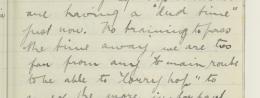 are having a "dud time"
just now. No training to pass
the time away, we are too
far from any main route
to be able to "lorry hop" to
the more important